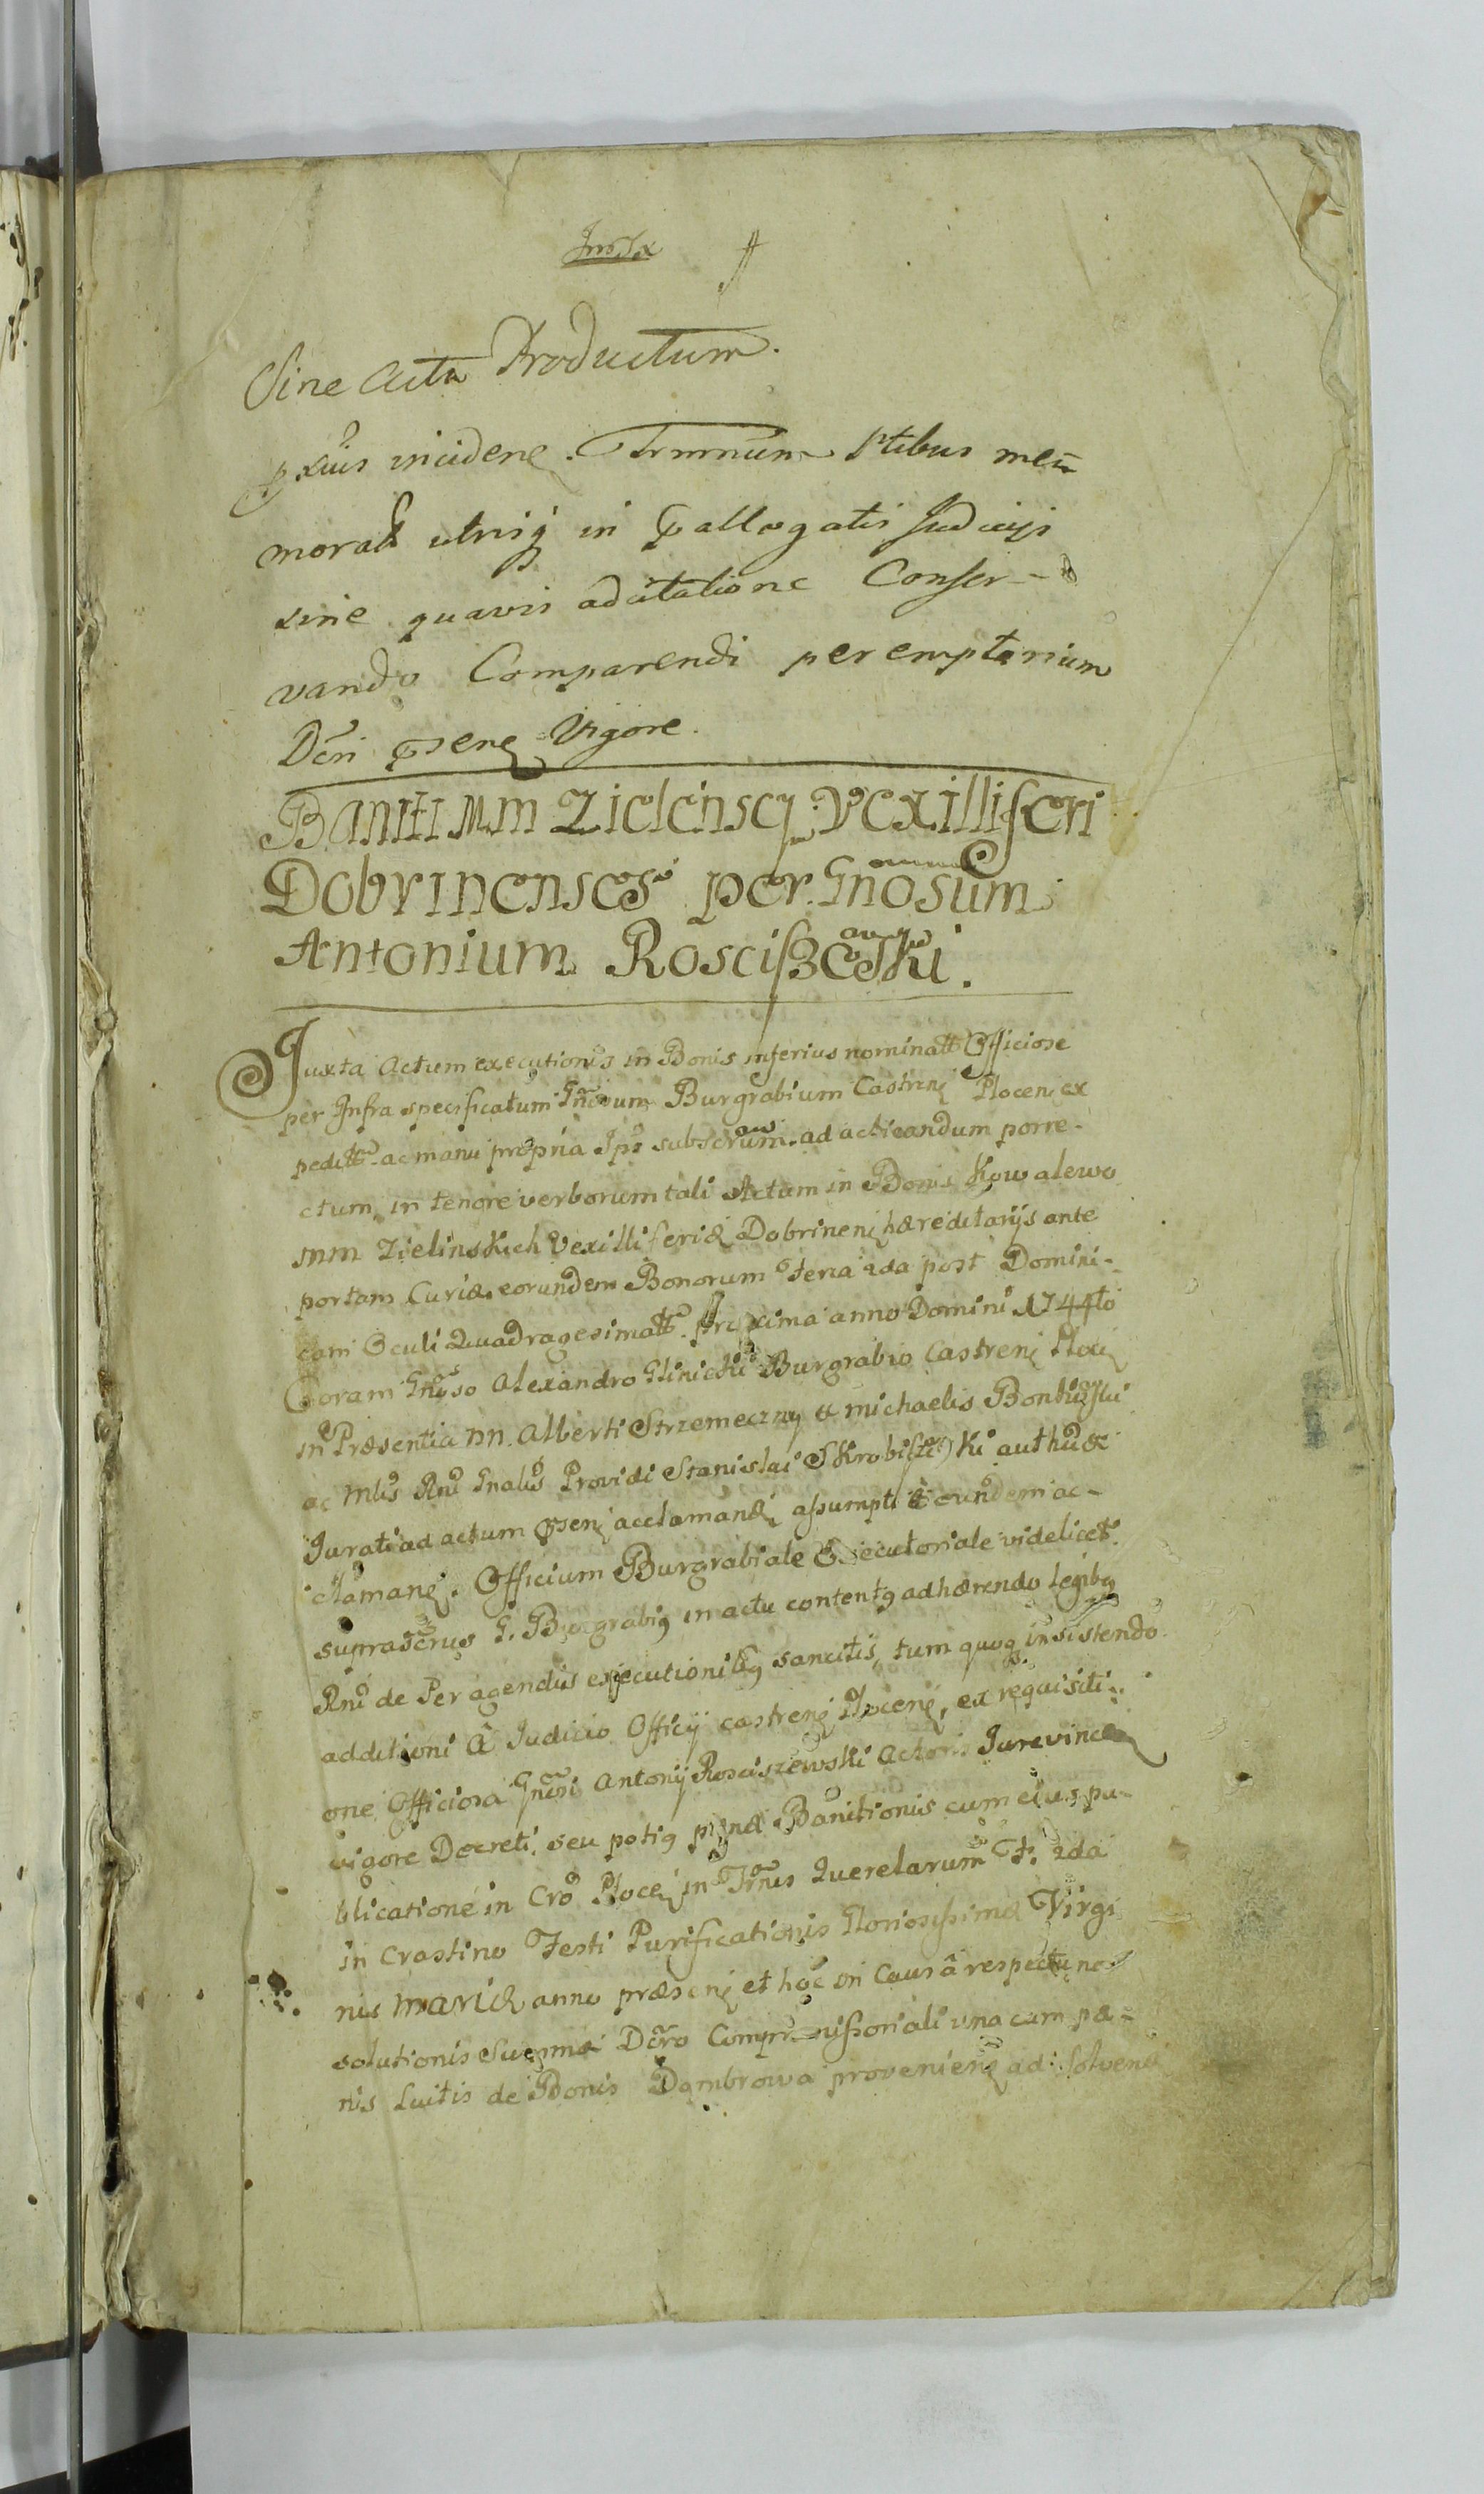 Sine Actu Productum.
incidenę. Trmnum Ptibus
in allegatis Judicijs
sine quavis adcitatione Conser-
vando Comparendi peremptorium
Dcri pseną Vigore.
Baniti MM Zielenscy Vexilliferi
Dobrinenses per Gnosum
Antonium Roscißewski.
Juxta Actum executionis in Bonis inferius nominatt Officiose
per Infra specificatum Gnosum Burgrabium Castrenę Plocenę ex
peditt ac manu propria Ips subscrum ad acticandum porre-
ctum, in tenore verborum tali Actum in Bonis Kowalewo
MM Zielinskich Vexilliferiæ Dobrinenę hæreditarijs ante
portam Curiæ eorundem Bonorum Feria 2da post Domini-
cam Oculi Quadragesimatt proxima anno Domini 1744to
Coram Gnoso Alexandro Glinicki Burgrabio Castrenę Plocę
in Præsentia NN. Alberti Strzemeczny et Michaelis
ac Mlis Rni Gnalis Providi Stanislai
Jurati ad actum psenę acclamanđ assumpti et eundem ac-
clamanę. Officium Burgrabiale Executoriale videlicet
suprascrus G. Burgrabiꝰ in actu contentꝰ adhærendo legibꝰ
Rni de Peragendis executionibꝰ sancitis, tum quoqꝫ insistendo
additioni à Judicio Officij castrenę Plocenę, ex requisiti-
one Officiosa Gnosi Antonij Rosciszewski Actoris Jurevincen
vigore Decreti, seu potiꝰ pænæ Banitionis cum ejus pu-
blicatione in Cro Plocę in Trnis Querelarum F. 2da
in Crastino Festi Purificationis Gloriosissimæ Virgi
nis Mariæ anno præsenę et hoc in Causâ respectu non
solutionis Summæ Dcro Compromissoriali una cum pæ-
nis Luitis de Bonis Dombrowa provenienę ad solvenđ